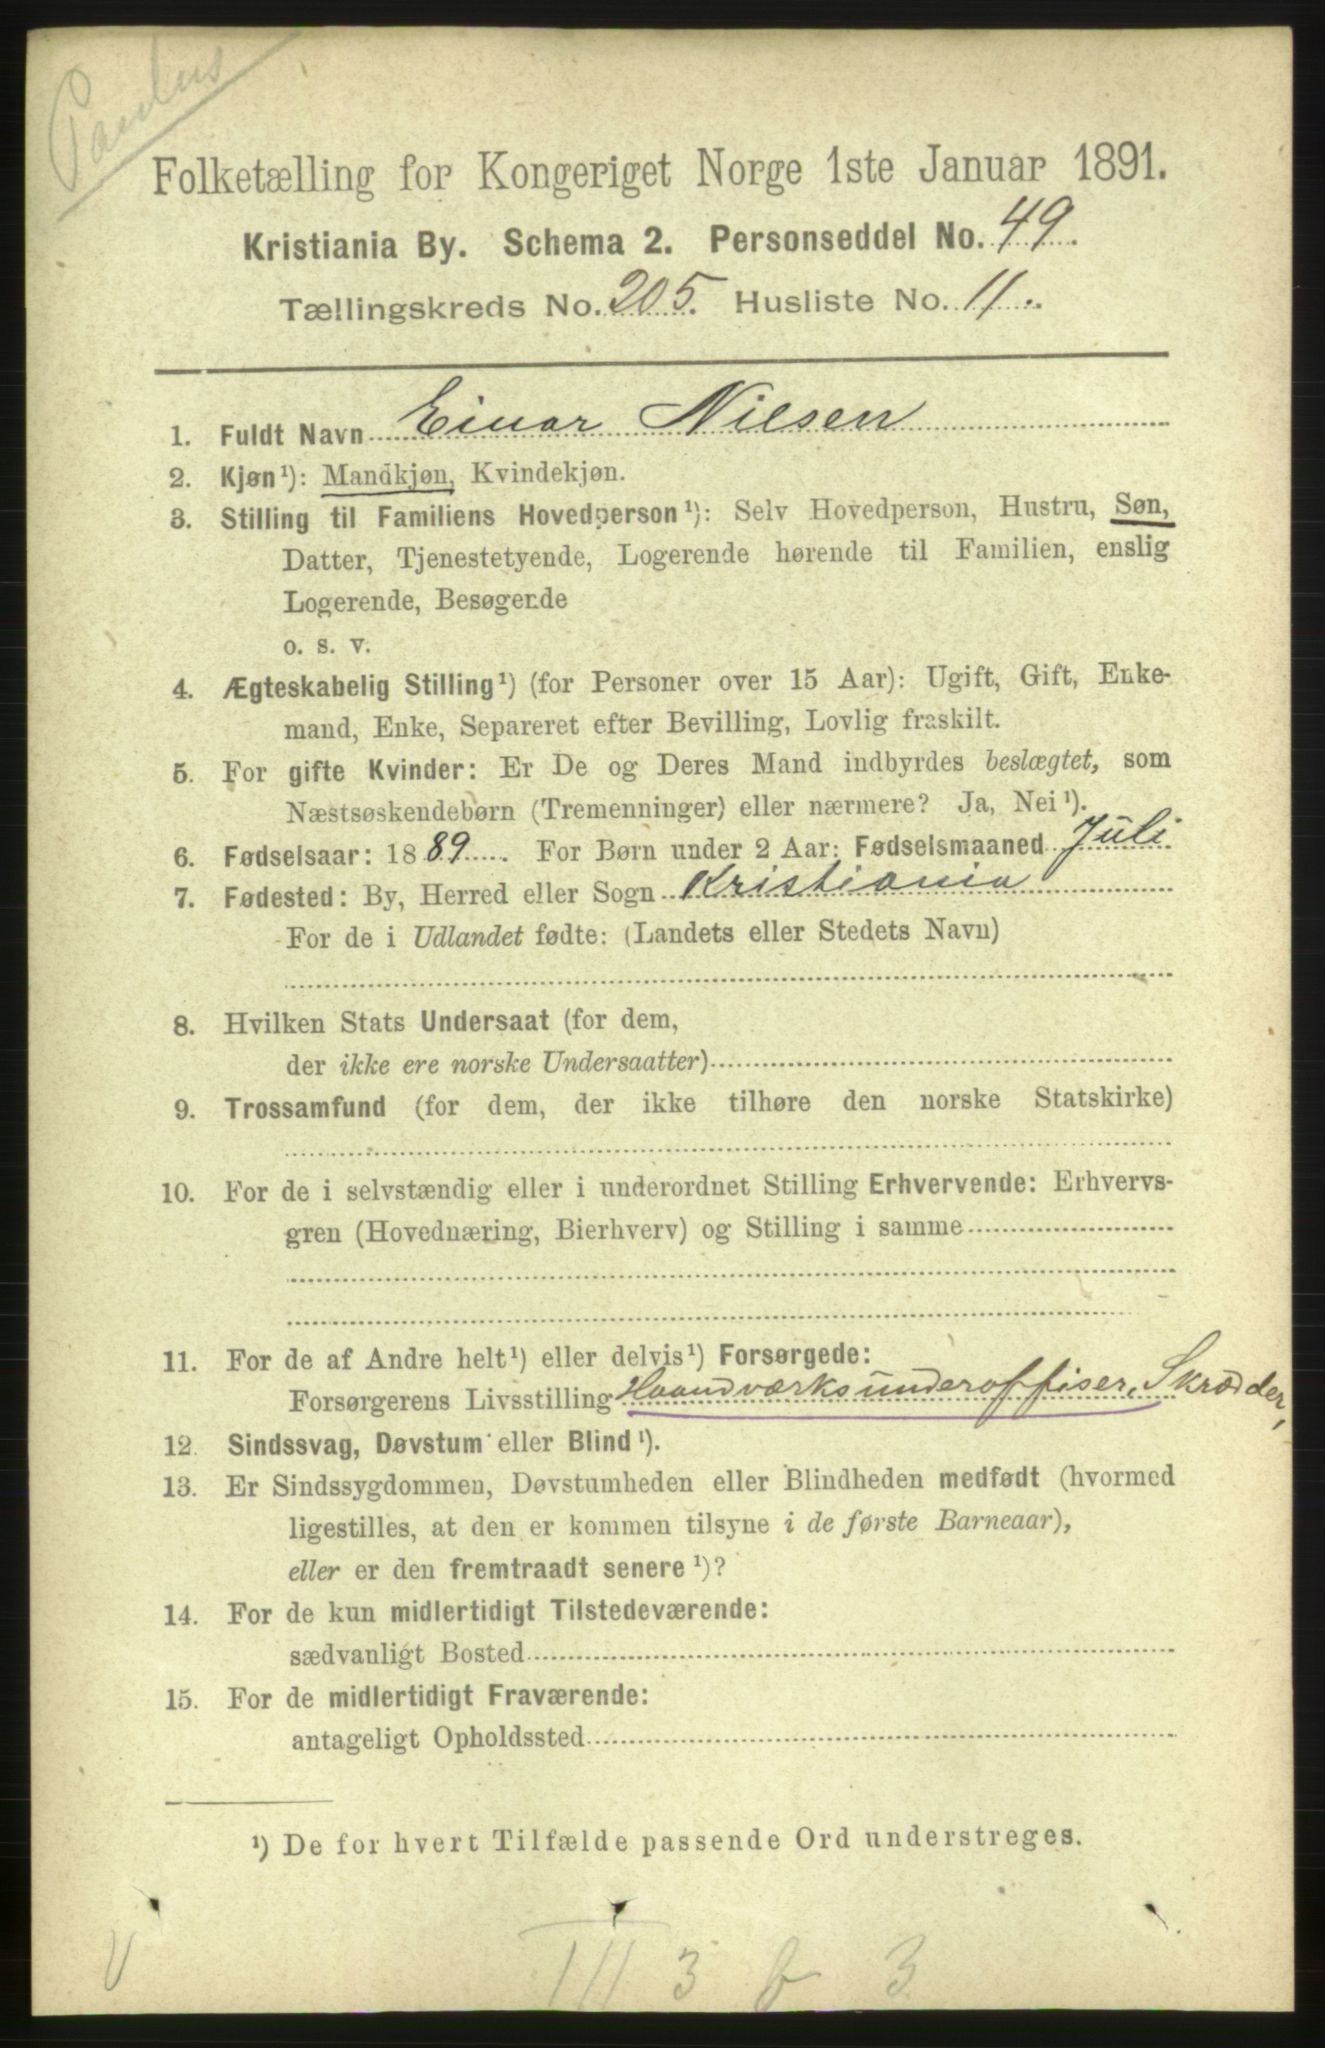 Paulus
Folketælling for Kongeriget Norge 1ste Januar 1891.
Kristiania By. Schema 2. Personseddel No. 49.
Tællingskreds No. 205. Husliste No. 11.
1. Fuldt Navn Einar Nilsen
2. Kjøn¹): Mandkjøn, Kvindekjøn.
3. Stilling til Familiens Hovedperson¹): Selv Hovedperson, Hustru, Søn,
Datter, Tjenestetyende, Logerende hørende til Familien, enslig
Logerende, Besøgende
o. s. v.
4. Ægteskabelig Stilling¹) (for Personer over 15 Aar): Ugift, Gift, Enke-
mand, Enke, Separeret efter Bevilling, Lovlig fraskilt.
5. For gifte Kvinder: Er De og Deres Mand indbyrdes beslægtet, som
Næstsøskendebørn (Tremenninger) eller nærmere? Ja, Nei¹).
6. Fødselsaar: 1889. For Børn under 2 Aar: Fødselsmaaned Juli
7. Fødested: By, Herred eller Sogn Kristiania
For de i Udlandet fødte: (Landets eller Stedets Navn)
8. Hvilken Stats Undersaat (for dem,
der ikke ere norske Undersaatter)
9. Trossamfund (for dem, der ikke tilhøre den norske Statskirke)
10. For de i selvstændig eller i underordnet Stilling Erhvervende: Erhvervs-
gren (Hovednæring, Bierhverv) og Stilling i samme
11. For de af Andre helt¹) eller delvis¹) Forsørgede:
Forsørgerens Livsstilling Haandværksunderoffiser, Skrædder,
12. Sindssvag, Døvstum eller Blind¹).
13. Er Sindssygdommen, Døvstumheden eller Blindheden medfødt (hvormed
ligestilles, at den er kommen tilsyne i de første Barneaar),
eller er den fremtraadt senere¹)?
14. For de kun midlertidigt Tilstedeværende:
sædvanligt Bosted
15. For de midlertidigt Fraværende:
antageligt Opholdssted
¹) De for hvert Tilfælde passende Ord understreges.
V III 3 b 3